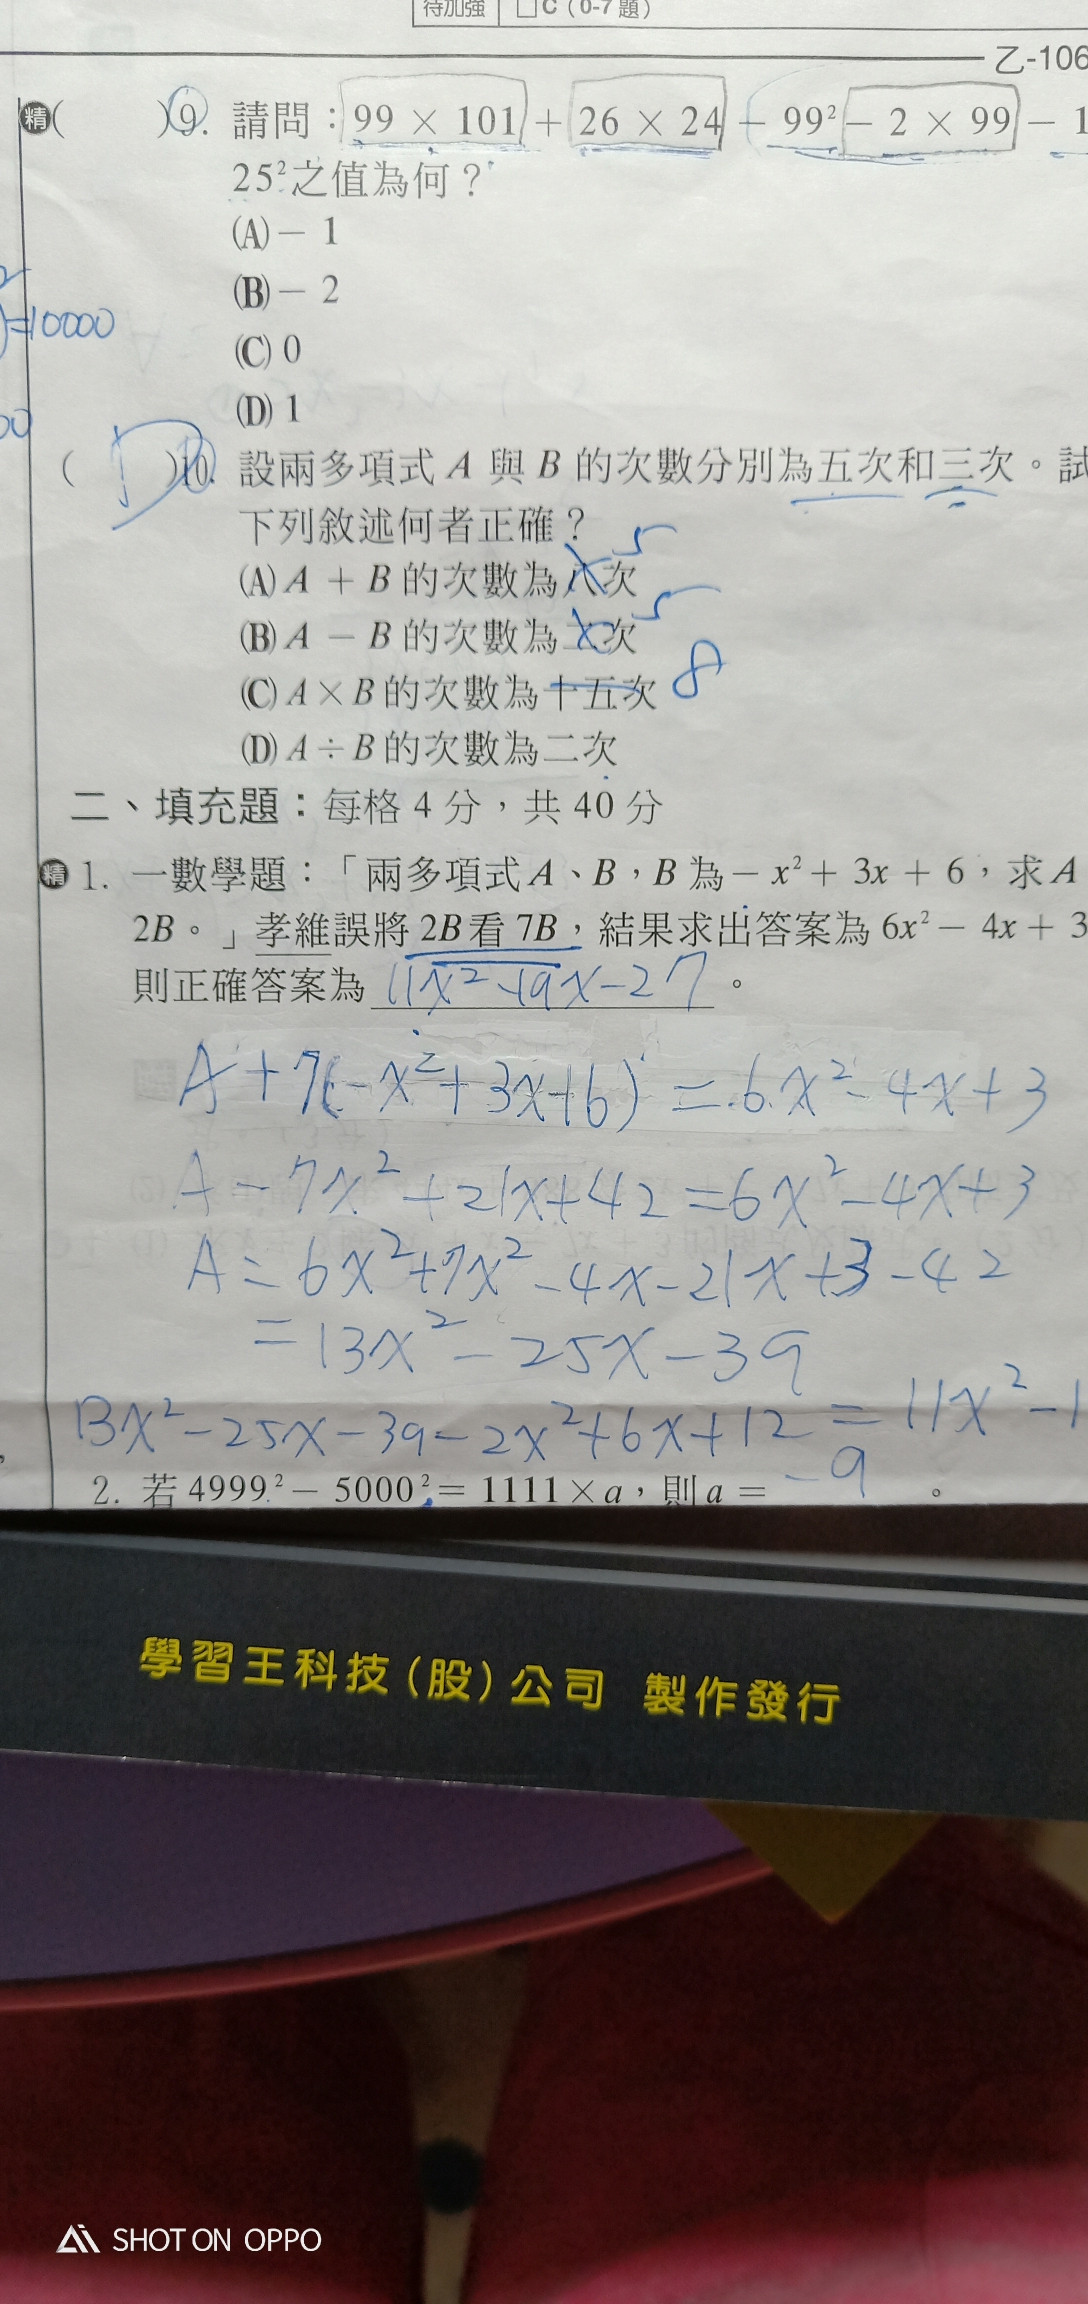 待加強 □C（0-7題）
乙-106
精( )9. 請問：99 × 101 + 26 × 24 - 99² - 2 × 99 - 1
25²之值為何？
(A) - 1
(B) - 2
=10000
(C) 0
(D) 1
( D )10. 設兩多項式 A 與 B 的次數分別為五次和三次。試
下列敘述何者正確？
(A) A + B 的次數為八次 5
(B) A - B 的次數為二次 5
(C) A × B 的次數為十五次 8
(D) A ÷ B 的次數為二次
二、填充題：每格 4 分，共 40 分
精 1. 一數學題：「兩多項式 A、B，B 為 - x² + 3x + 6，求 A
2B。」孝維誤將 2B 看 7B，結果求出答案為 6x² - 4x + 3
則正確答案為 11x²-19x-27 。
A+7(-x²+3x+6)=6x²-4x+3
A-7x²+21x+42=6x²-4x+3
A=6x²+7x²-4x-21x+3-42
=13x²-25x-39
13x²-25x-39-2x²+6x+12=11x²-1
2. 若 4999² - 5000² = 1111 × a，則 a = -9 。
學習王科技(股)公司 製作發行
SHOT ON OPPO